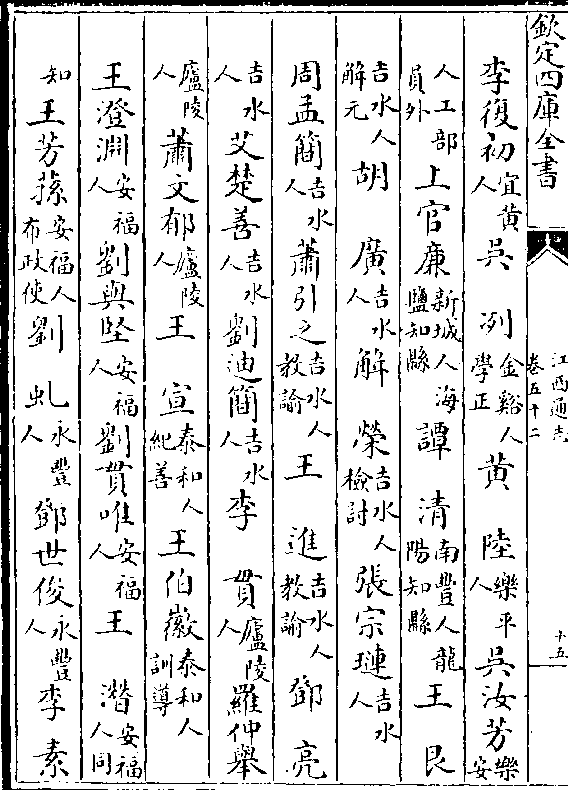 欽定四庫全書 江西通志 卷五十二 十五
李復初宜黃人吳 冽金谿人學正黃 陸樂平人吳汝芳樂安
人工部員外上官廉新城人海鹽知縣譚 清南豐人龍陽知縣王 艮
吉水人解元胡 廣吉水人解 榮吉水人檢討張宗璉吉水人
周孟簡吉水人蕭引之吉水人教諭王 進吉水人教諭鄧 亮
吉水人艾楚善吉水人劉迪簡吉水人李 貫廬陵人羅仲舉
廬陵人蕭文郁廬陵人王 宣泰和人紀善王伯徽泰和人訓導
王澄淵安福人劉與堅安福人劉貫唯安福人王 潛安福人同
知王芳蓀安福人布政使劉 虬永豐人鄧世俊永豐人李 素